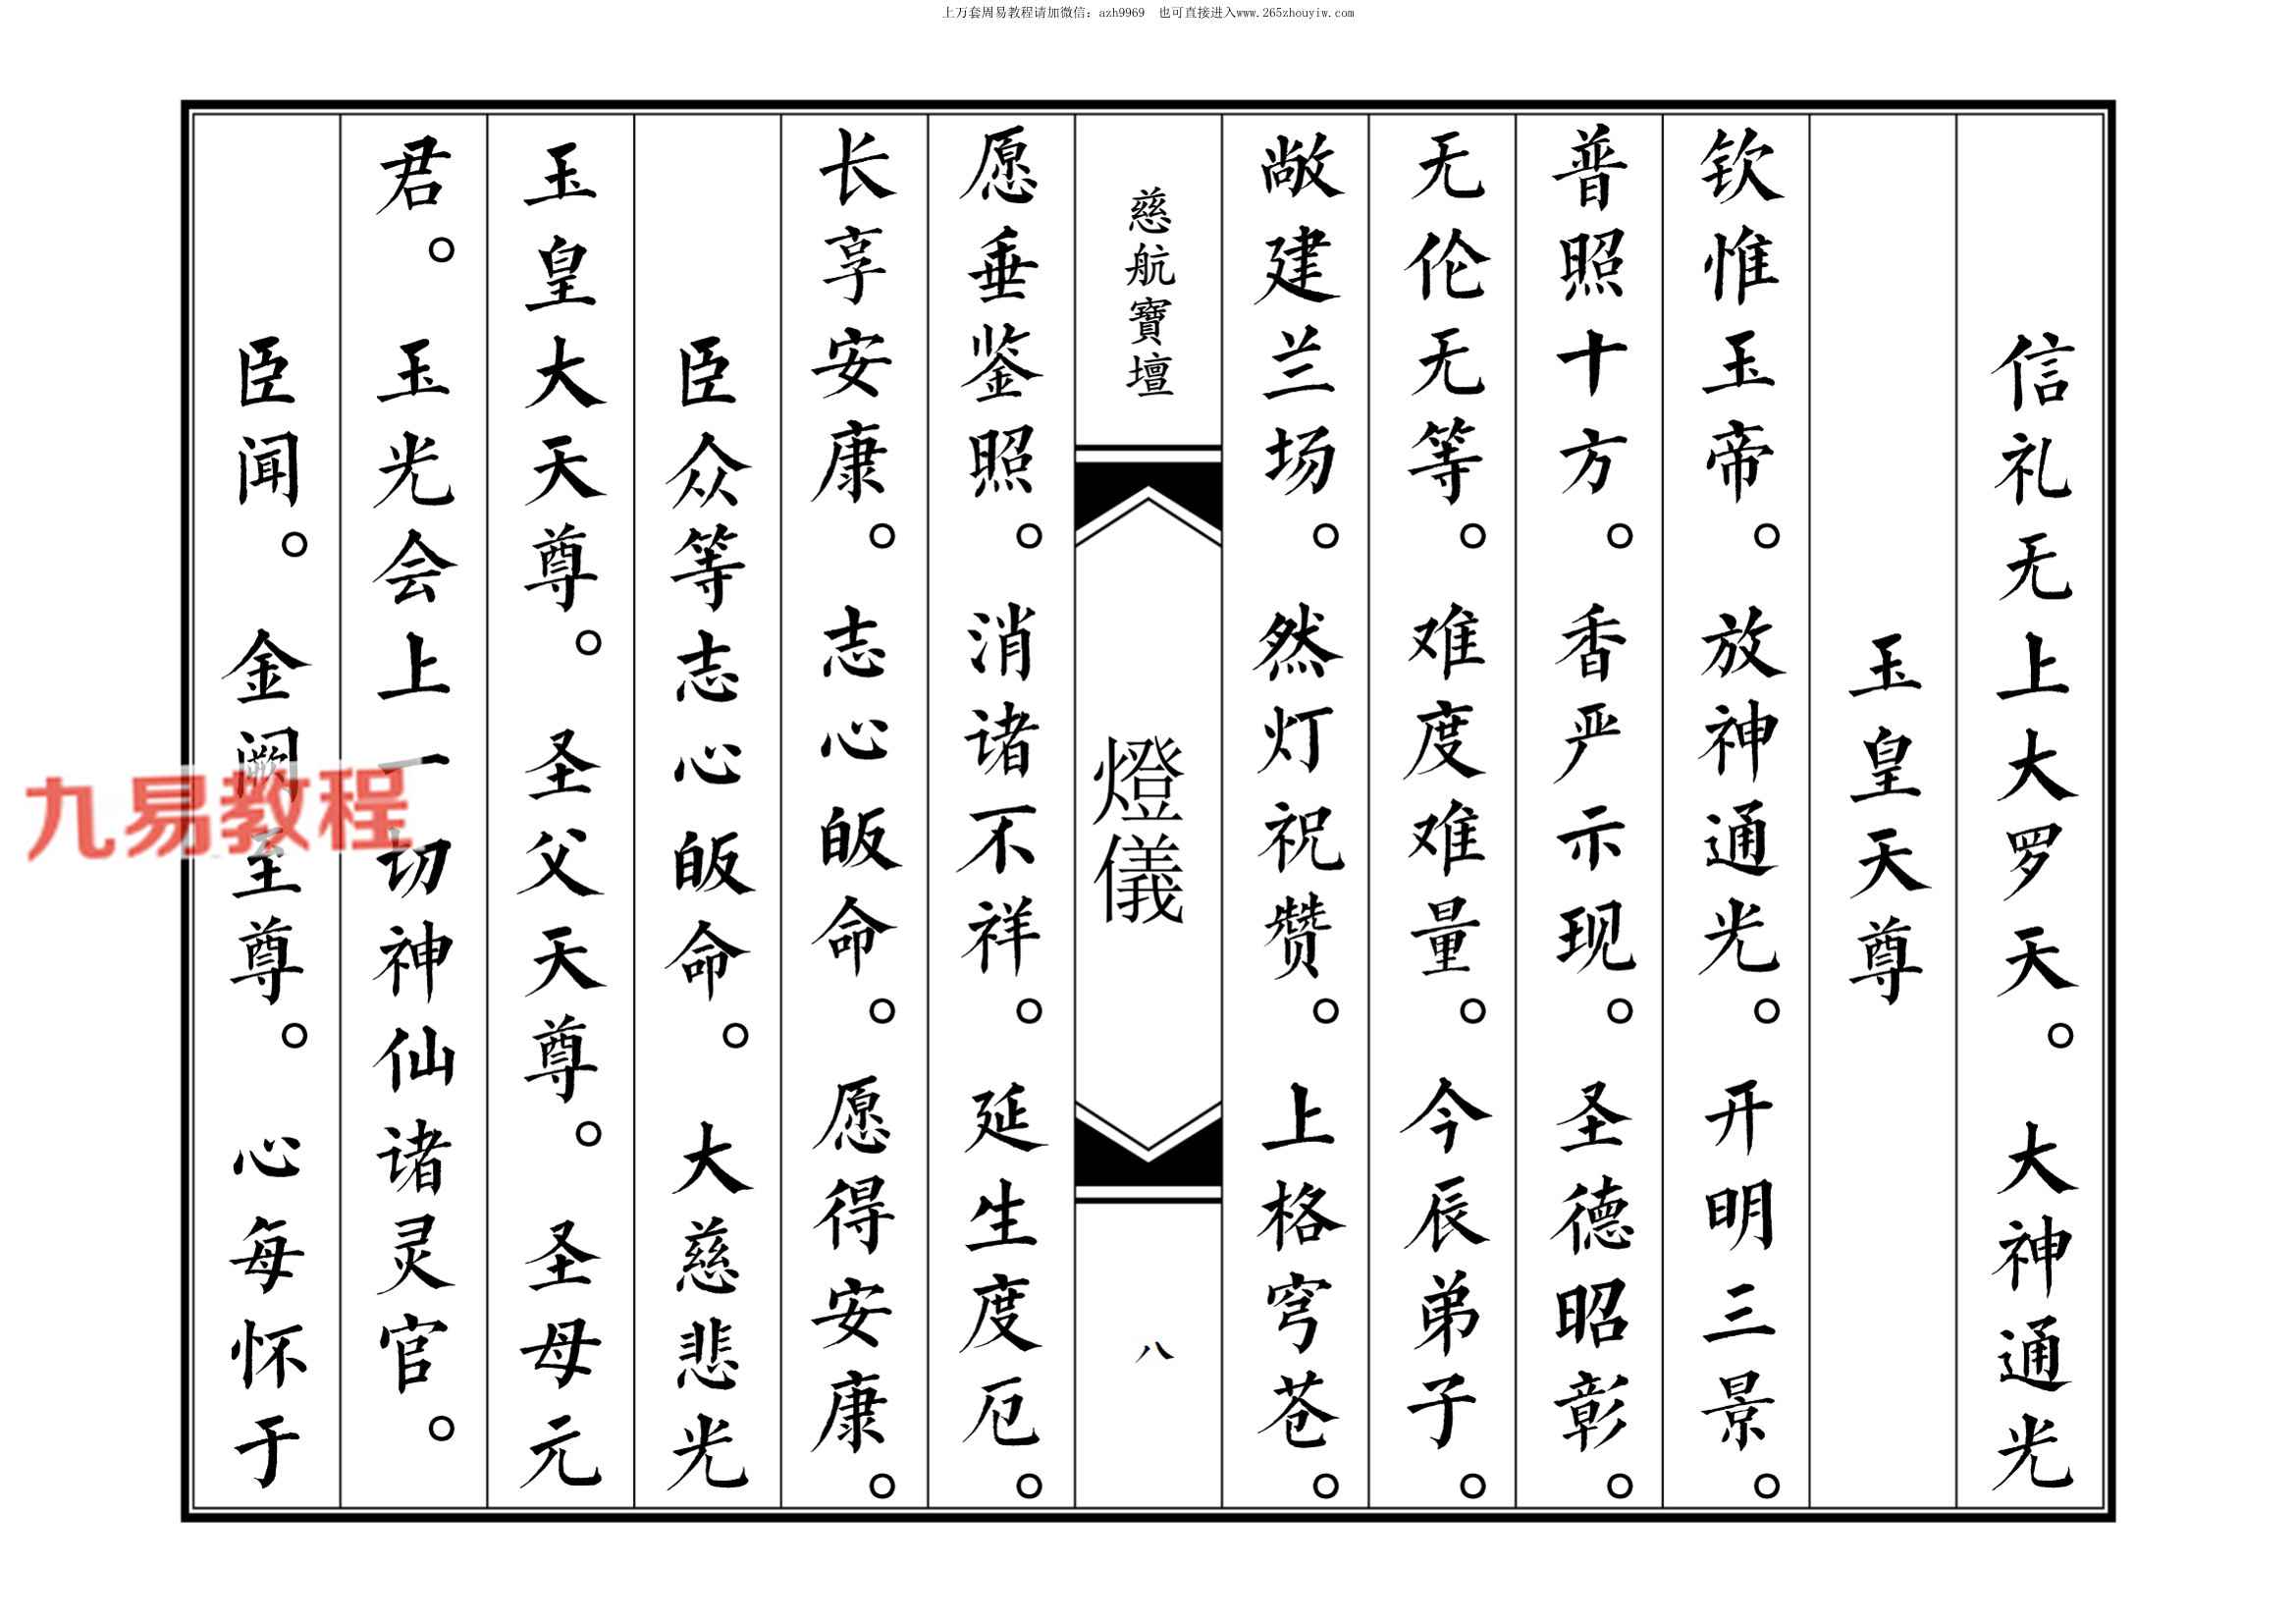 上万套周易教程请加微信：azh9969 也可直接进入www.265zhouyiw.com
信礼无上大罗天。大神通光
玉皇天尊
钦惟玉帝。放神通光。开明三景。
普照十方。香严示现。圣德昭彰。
无伦无等。难度难量。今辰弟子。
敞建兰场。然灯祝赞。上格穹苍。
慈航寶壇
燈儀
八
愿垂鉴照。消诸不祥。延生度厄。
长享安康。志心皈命。愿得安康。
臣众等志心皈命。大慈悲光
玉皇大天尊。圣父天尊。圣母元
君。玉光会上一切神仙诸灵官。
臣闻。金阙至尊。心每怀于
九易教程